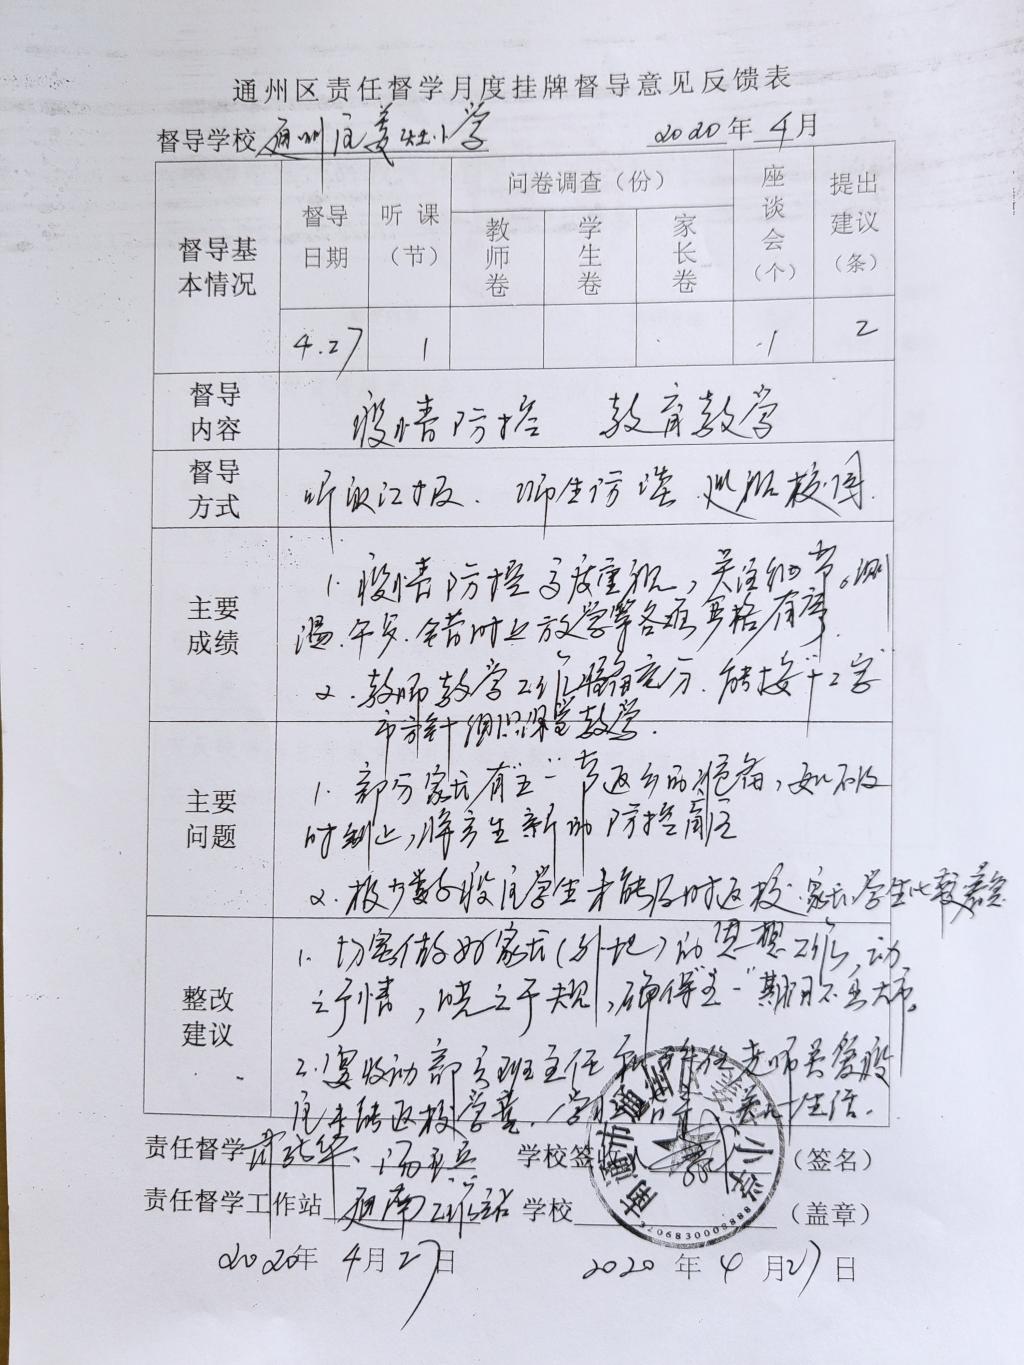 通州区责任督学月度挂牌督导意见反馈表
督导学校 通州区姜灶小学 2020年 4月
督导基本情况
督导日期
听课（节）
问卷调查（份）
教师卷
学生卷
家长卷
座谈会（个）
提出建议（条）
4.27 1 1 2
督导内容
疫情防控 教育教学
督导方式
听取汇报. 师生访谈 巡视校园.
主要成绩
1. 疫情防控高度重视，关注细节。测
温.午餐.错时上放学等各项严格有序.
2. 教师教学工作准备充分.能按"十二字
方针"组织课堂教学.
主要问题
1. 部分家长有"五一"节返乡的准备，如不及
时制止，将产生新的防控
2. 极少数疫区学生未能及时返校.家长.学生比较着急
整改建议
1. 切实做好家长（外地）的思想工作，动
之于情，晓之于规，确保"五一"期间不出
2. 要发动部分班主任和 任老师关爱疫
区未能返校学 生活.
责任督学 学校签收人 （签名）
责任督学工作站 通南工作站 学校 （盖章）
2020年 4月27日 2020年 4月27日
3206830008888